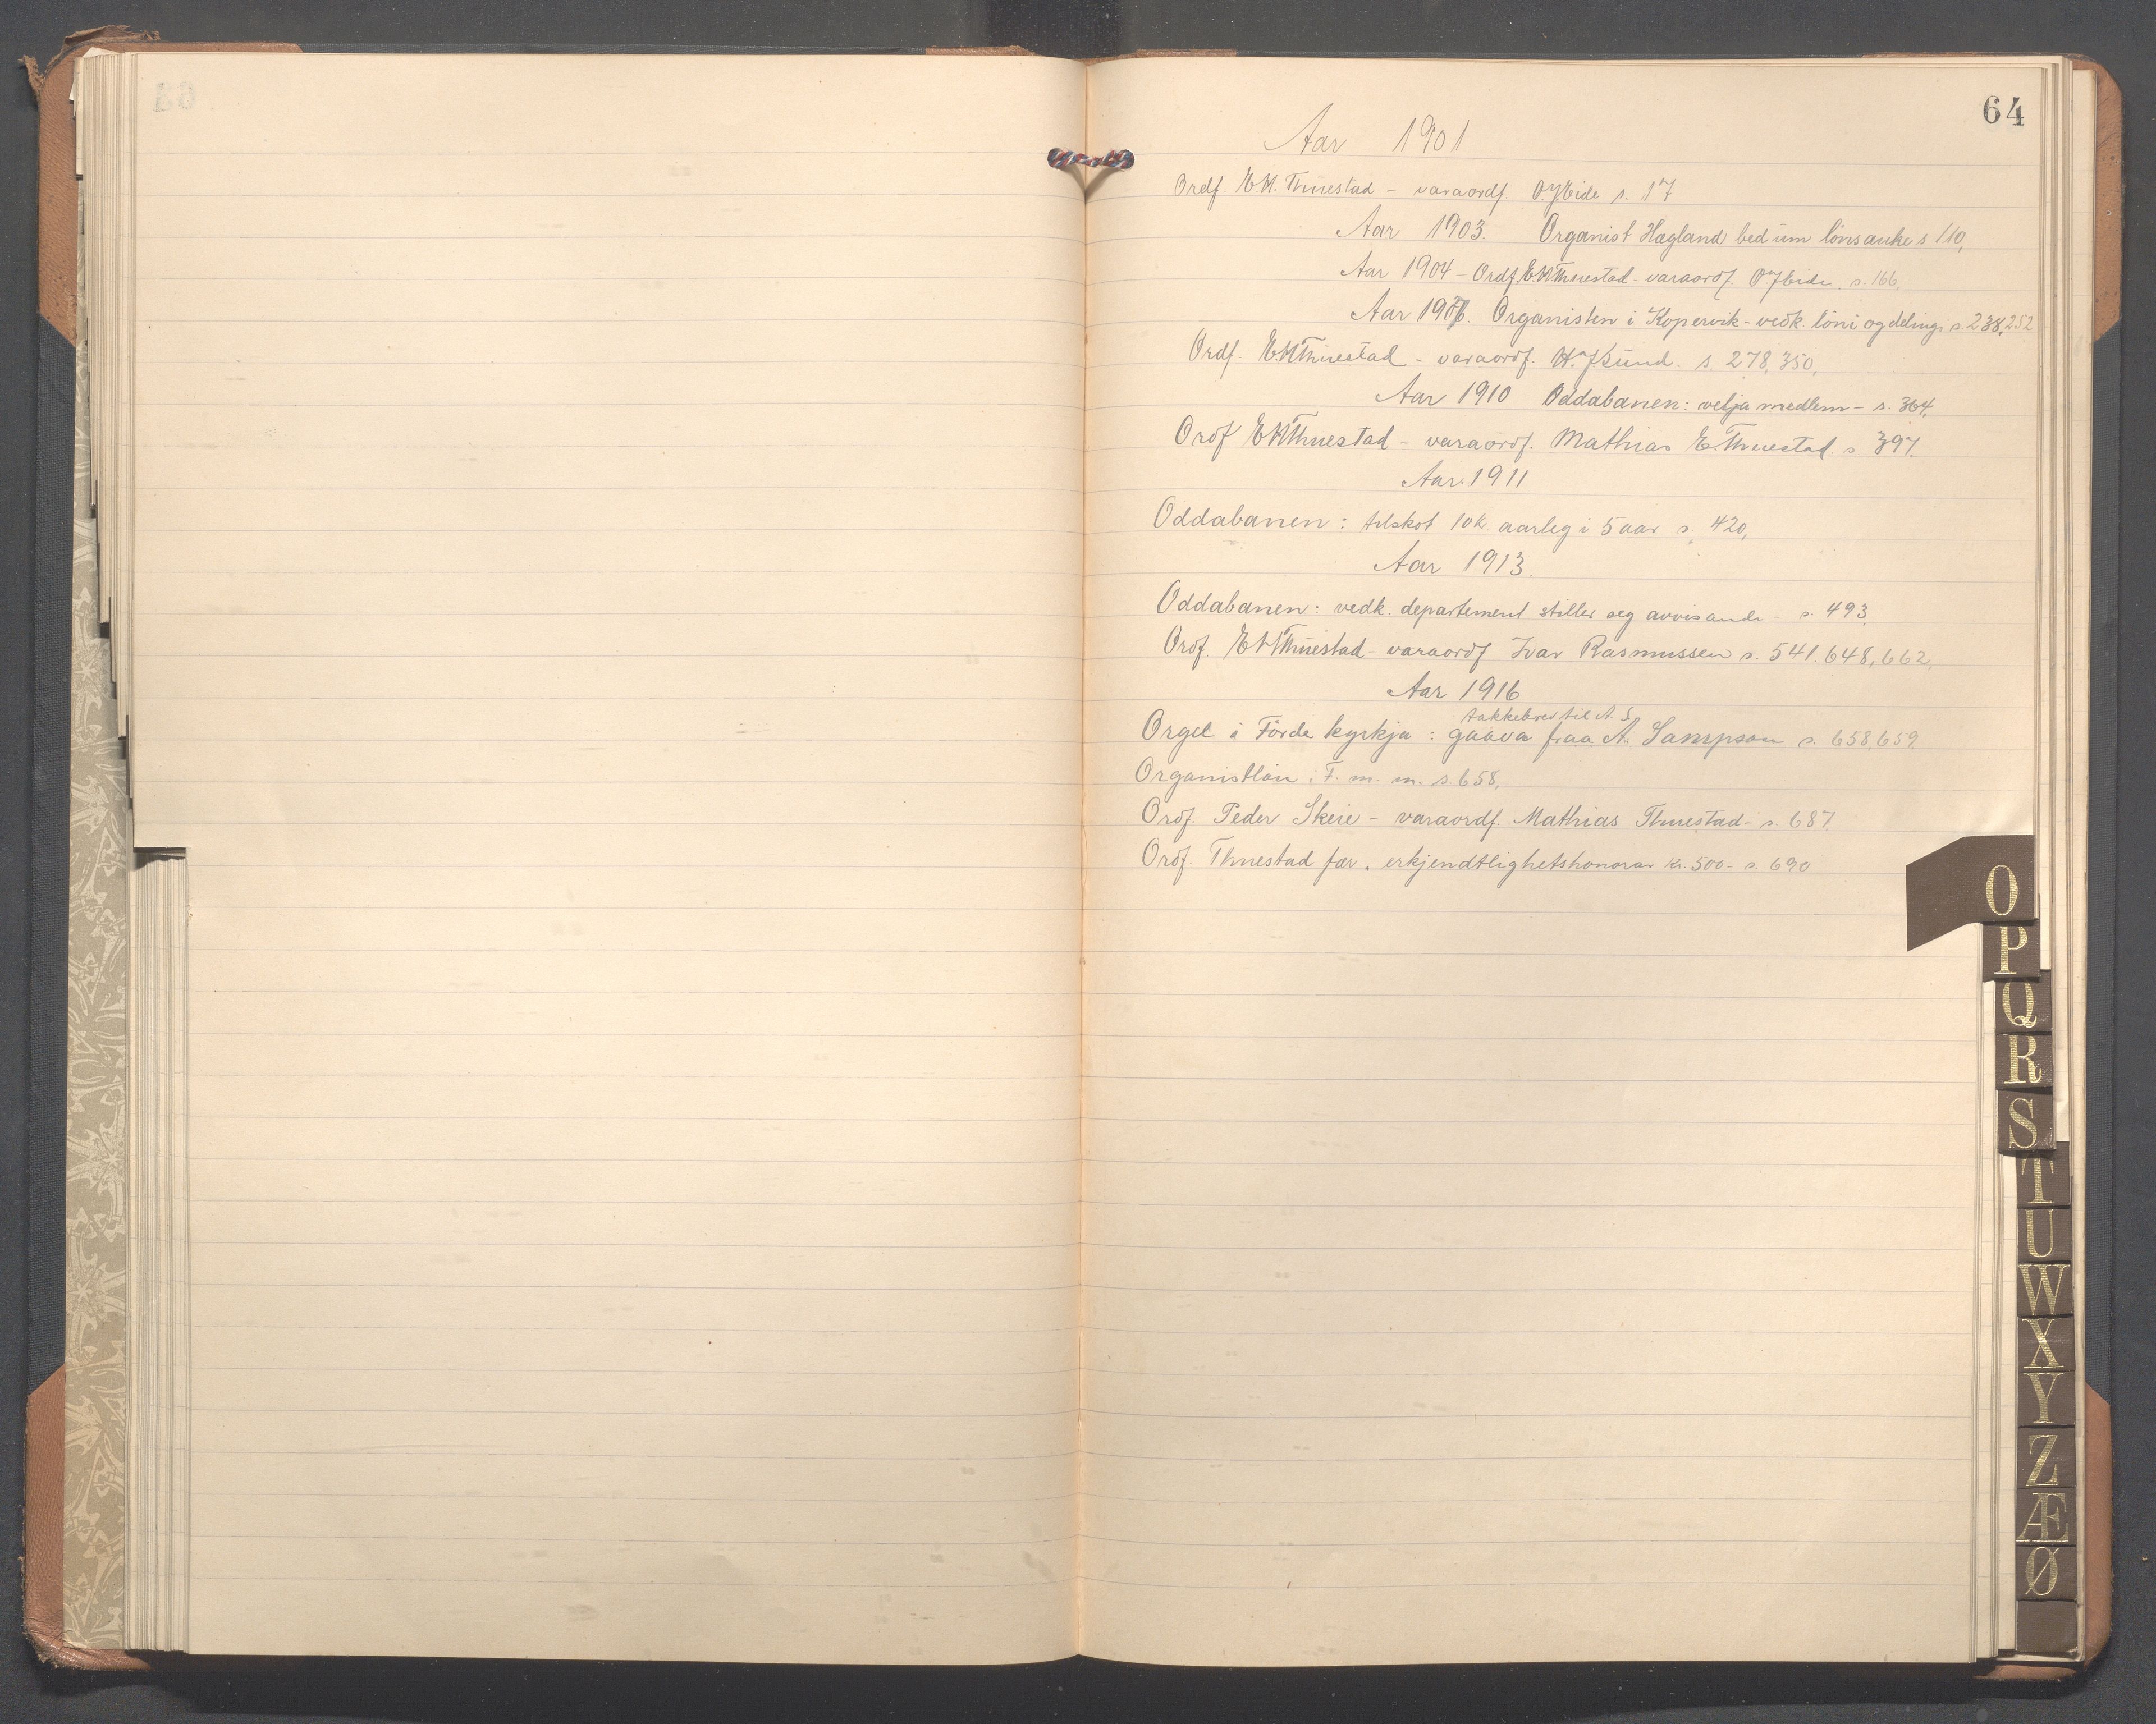 64
Aar 1901
Ordf. E.H. Thuestad - varaordf. O.J. Eide s. 17
Aar 1903. Organist Hagland bed um lönsauke s 110,
Aar 1904 - Ordf E.H. Thuestad - varaordf. O.J. Eide. s. 166,
Aar 1907. Organisten i Kopervik - vedk. löni og deling s. 238, 252
Ordf. E.H Thuestad - varaordf. H. J. Sund. s. 278, 350,
Aar 1910 Oddabanen: velja medlem - s. 364,
Ordf E H Thuestad - varaordf. Mathias E. Thuestad. s 397.
Aar 1911
Oddabanen: tilskot 10k aarleg i 5 aar s. 420,
Aar 1913.
Oddabanen: vedk. departement stiller seg avvisande - s. 493,
Ordf. E H Thuestad - varaordf Ivar Rasmussen s. 541. 648, 662,
Aar 1916
takkebrev til A. S
Orgel i Förde kyrkja: gaava fraa A. Sampson s. 658, 659
Organistlön i F. m. m. s. 658,
Ordf. Peder Skeie - varaordf. Mathias Thuestad - s. 687
Ordf. Thuestad fær. erkjendtlighetshonorar kr. 500 - s. 690
O
P
Q
R
S
T
U
W
X
Y
Z
Æ
Ø